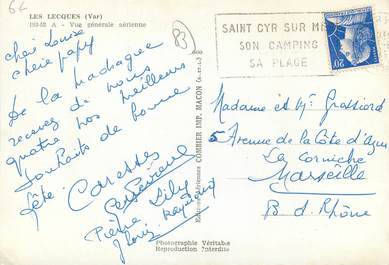 62
LES LECQUES (Var)
193-52 A - Vue générale aérienne
83
SAINT CYR SUR MER
SON CAMPING
SA PLAGE
20
chère Louise
chère papy
De la Madrague
recevez de nous
quatre nos meilleurs
souhaits de bonne
fête.
Caresses
Pierre Lily
Louis Raymond
Editions Aériennes COMBIER IMP. MACON (S.-et-L.)
Madame et Mr Grossiord
5 Avenue de la Côte d'Azur
La Corniche
Marseille
B. d. Rhône
Photographie Véritable
Reproduction Interdite